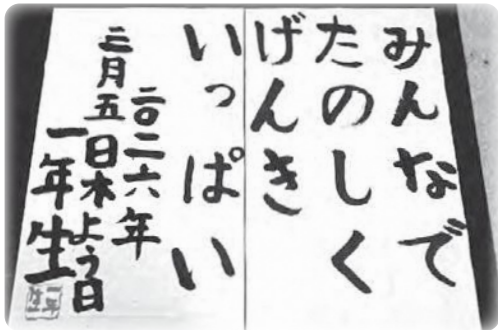 みんなで
たのしく
げんき
いっぱい
二〇二六年
三月五日木よう日
一年生
一年生